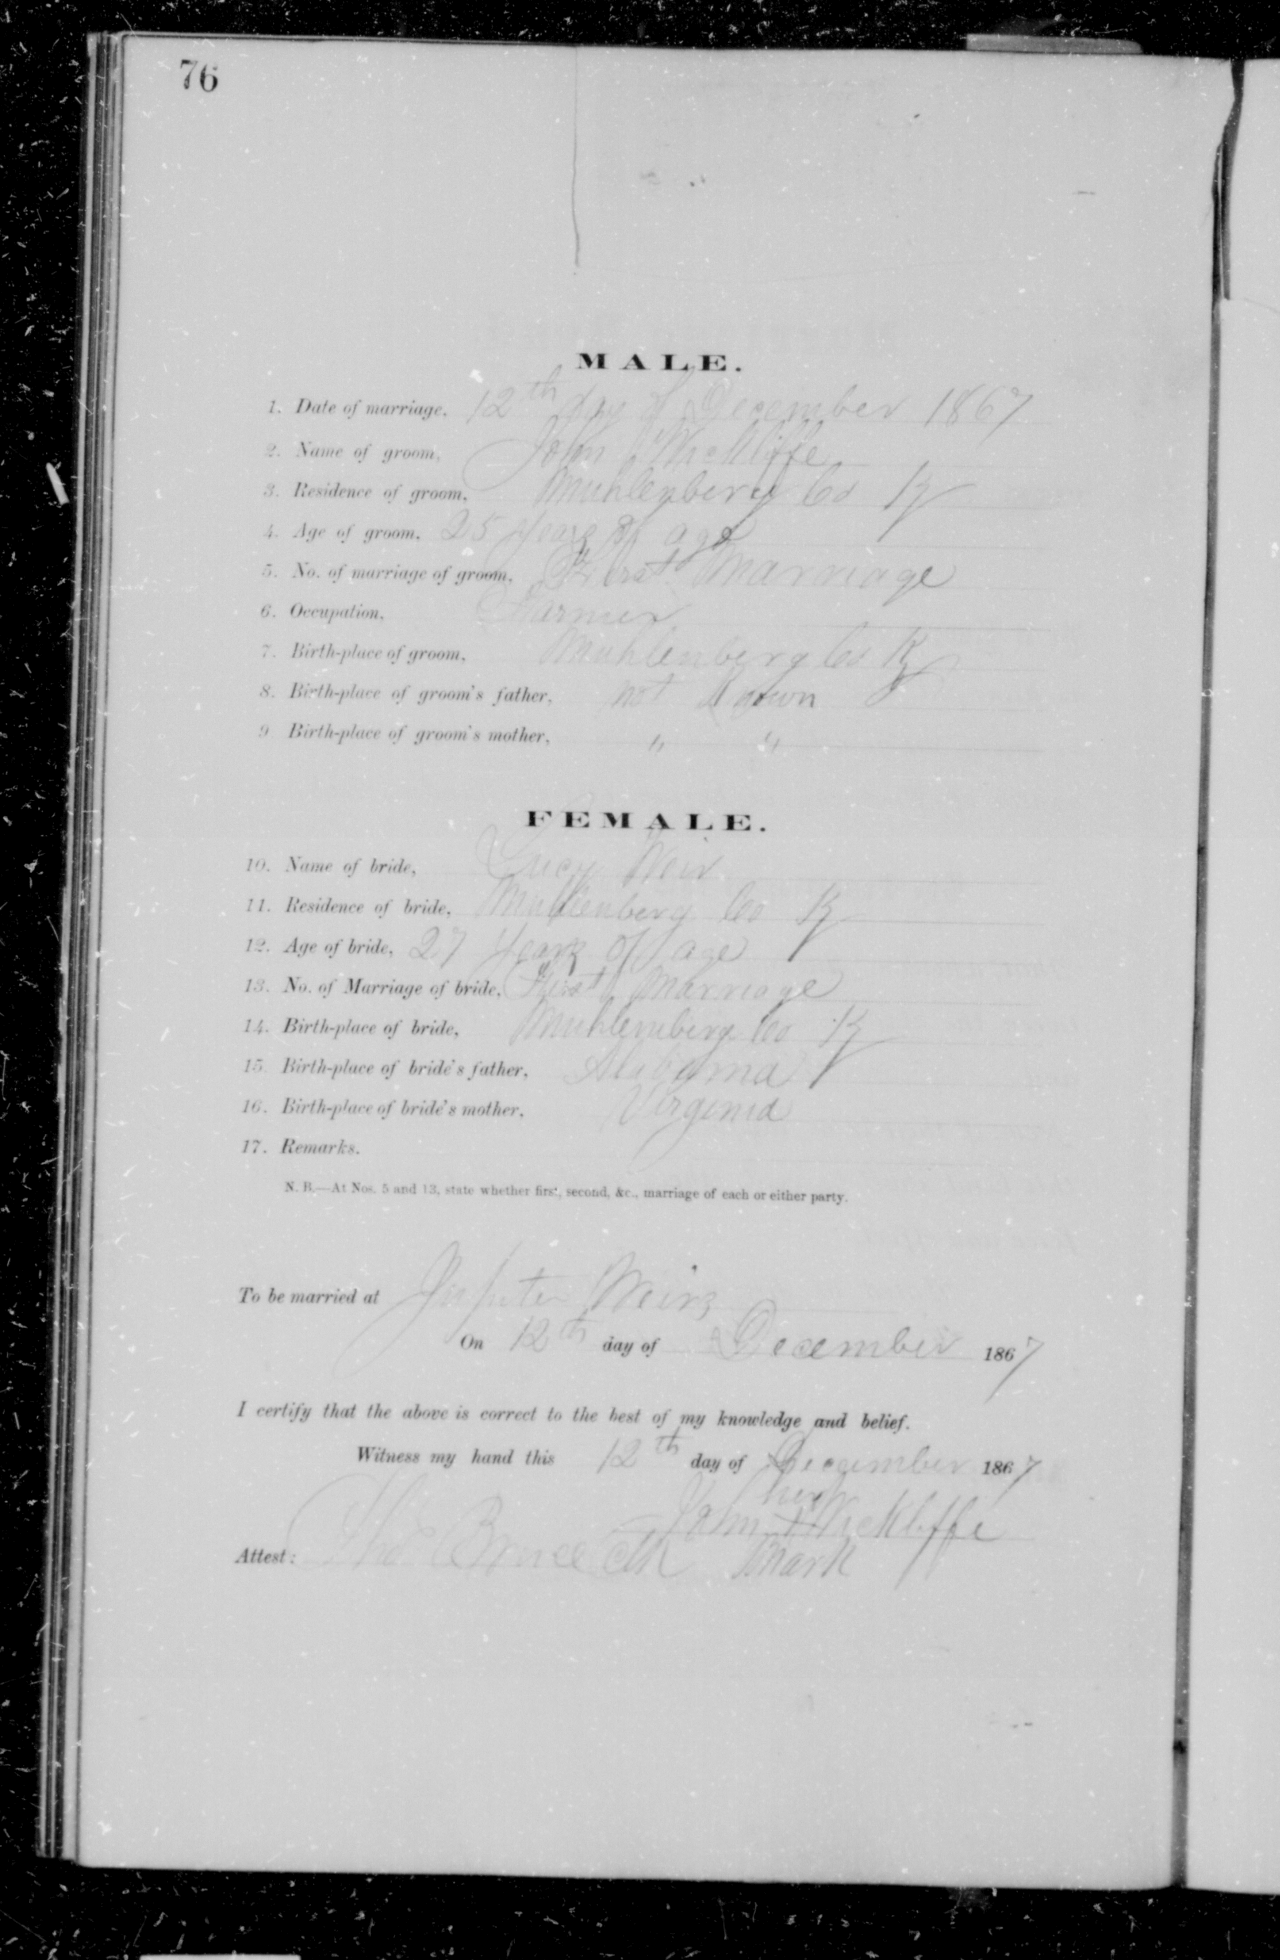 76
MALE.
1. Date of marriage, 12th day of December 1867
2. Name of groom, John Wickliffe
3. Residence of groom, Muhlenberg Co Ky
4. Age of groom, 25 years of age
5. No. of marriage of groom, First Marriage
6. Occupation, Farmer
7. Birth-place of groom, Muhlenberg Co Ky
8. Birth-place of groom's father, not Known
9 Birth-place of groom's mother, " "
FEMALE.
10. Name of bride, Lucy Weir
11. Residence of bride, Muhlenberg Co Ky
12. Age of bride, 27 years of age
13. No. of Marriage of bride, First Marriage
14. Birth-place of bride, Muhlenberg Co Ky
15. Birth-place of bride's father, Alabama
16. Birth-place of bride's mother, Virginia
17. Remarks.
N. B.—At Nos. 5 and 13, state whether first, second, &c., marriage of each or either party.
To be married at Jupiter Weirs
On 12th day of December 1867
I certify that the above is correct to the best of my knowledge and belief.
Witness my hand this 12th day of December 1867
his
John + Wickliffe
Attest: Tho Bruce Clk mark